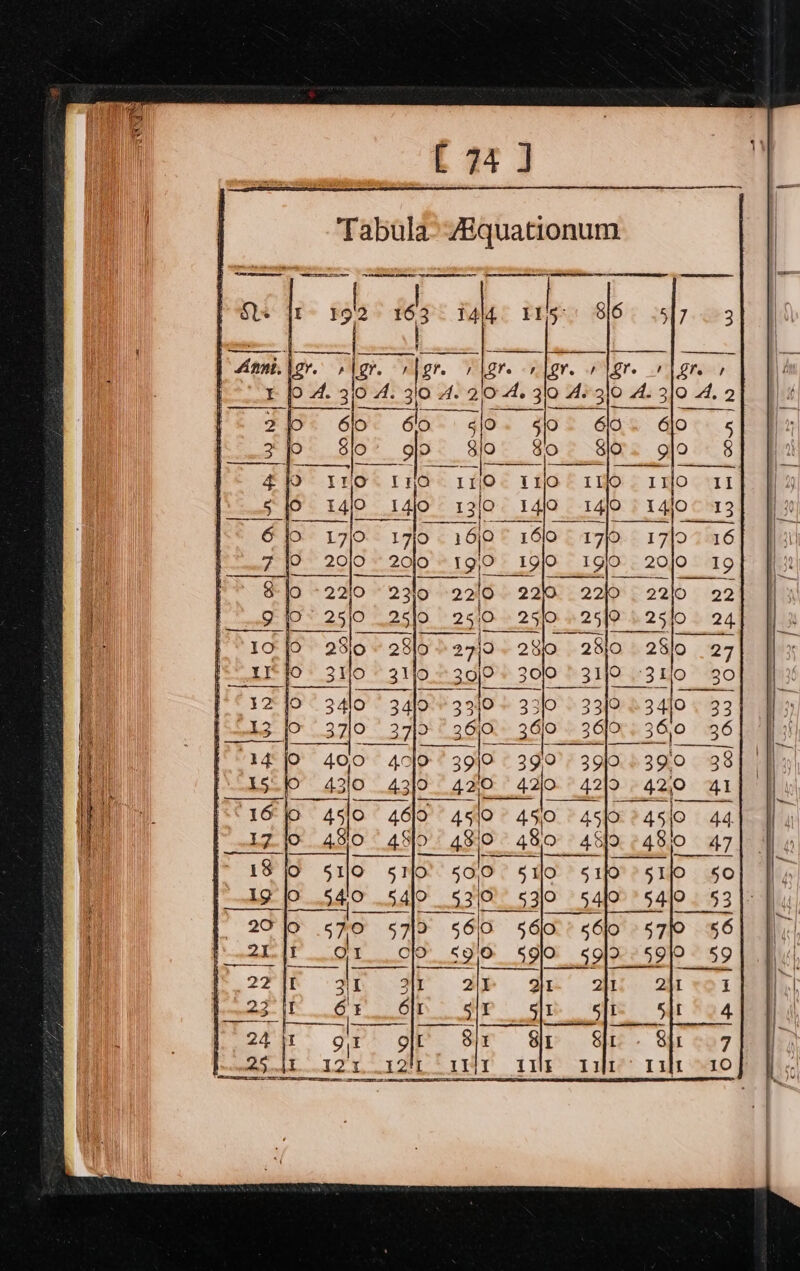 [ 74 ]
Tabula Æquationum
♌ 1 19 2 16 3 14 4 11 5 8 6 5 7 3
Anni. gr. ′ gr. ′ gr. ′ gr. ′ gr. ′ gr. ′ gr. ′
1 0 A. 3 0 A. 3 0 A. 2 0 A. 3 0 A. 3 0 A. 3 0 A. 2
2 0 6 0 6 0 5 0 5 0 6 0 6 0 5
3 0 8 0 9 0 8 0 8 0 8 0 9 0 8
4 0 11 0 11 0 11 0 11 0 11 0 11 0 11
5 0 14 0 14 0 13 0 14 0 14 0 14 0 13
6 0 17 0 17 0 16 0 16 0 17 0 17 0 16
7 0 20 0 20 0 19 0 19 0 19 0 20 0 19
8 0 22 0 23 0 22 0 22 0 22 0 22 0 22
9 0 25 0 25 0 25 0 25 0 25 0 25 0 24
10 0 28 0 28 0 27 0 28 0 28 0 28 0 27
11 0 31 0 31 0 30 0 30 0 31 0 31 0 30
12 0 34 0 34 0 33 0 33 0 33 0 34 0 33
13 0 37 0 37 0 36 0 36 0 36 0 36 0 36
14 0 40 0 40 0 39 0 39 0 39 0 39 0 38
15 0 43 0 43 0 42 0 42 0 42 0 42 0 41
16 0 45 0 46 0 45 0 45 0 45 0 45 0 44
17 0 48 0 48 0 48 0 48 0 48 0 48 0 47
18 0 51 0 51 0 50 0 51 0 51 0 51 0 50
19 0 54 0 54 0 53 0 53 0 54 0 54 0 53
20 0 57 0 57 0 56 0 56 0 56 0 57 0 56
21 1 0 1 0 0 59 0 59 0 59 0 59 0 59
22 1 3 1 3 1 2 1 2 1 2 1 2 1 1
23 1 6 1 6 1 5 1 5 1 5 1 5 1 4
24 1 9 1 9 1 8 1 8 1 8 1 8 1 7
25 1 12 1 12 1 11 1 11 1 11 1 11 1 10